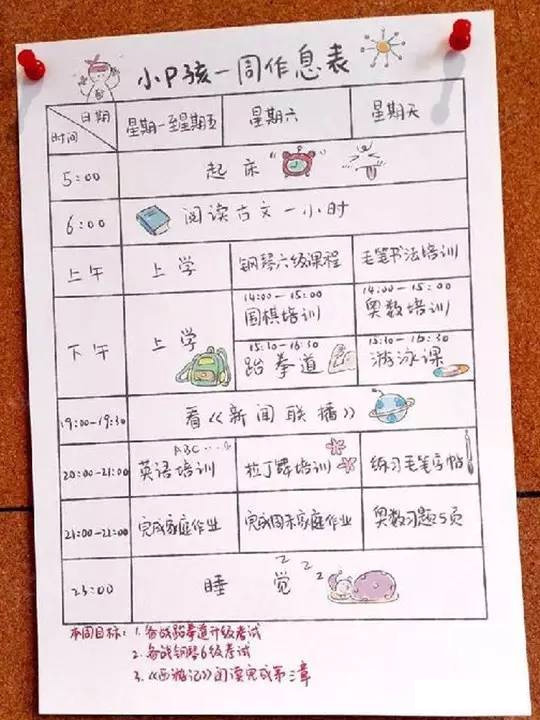 小P孩一周作息表
日期
时间
星期一至星期五 星期六 星期天
5:00 起床
6:00 阅读古文一小时
上午 上学 钢琴六级课程 毛笔书法培训
下午 上学
14:00-15:00 14:00-15:00
围棋培训 奥数培训
15:30-16:30 15:30-16:30
跆拳道 游泳课
19:00-19:30 看《新闻联播》
ABC...
20:00-21:00 英语培训 拉丁舞培训 练习毛笔字帖
21:00-22:00 完成家庭作业 完成周末家庭作业 奥数习题5页
23:00 睡觉 z z z
本周目标:1.备战跆拳道升级考试
2.备战钢琴6级考试
3.《西游记》阅读完成第三章